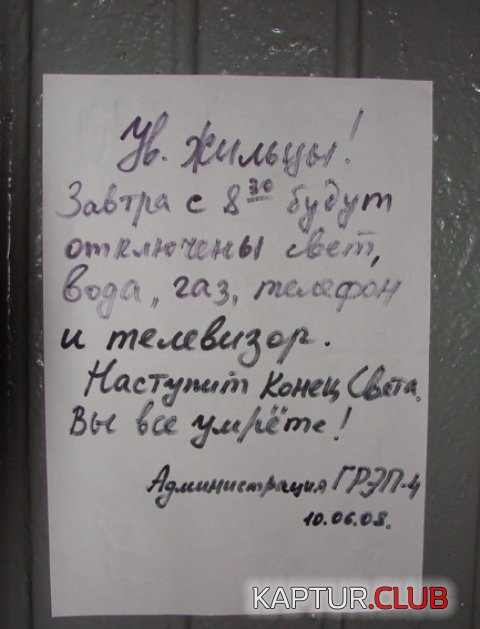 Ув. жильцы!
Завтра с 8 30 будут
отключены свет,
вода, газ, телефон
и телевизор.
Наступит Конец Света.
Вы все умрёте!
Администрация ГРЭП-4
10.06.08.
KAPTUR.CLUB